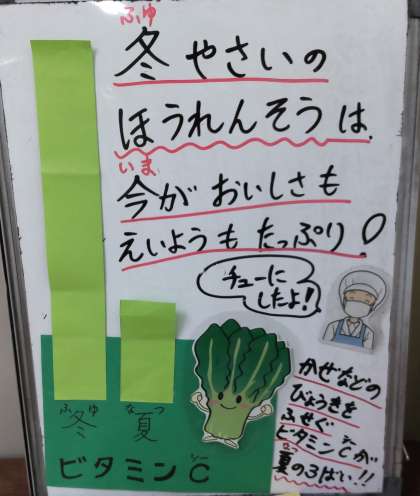 ふゆ
冬やさいの
ほうれんそうは、
いま
今がおいしさも
えいようもたっぷり!
チューに
したよ!
かぜなどの
びょうきを
ふせぐ
シー
ビタミンCが
なつ
夏の3ばい!!
ふゆ なつ
冬 夏
シー
ビタミンC